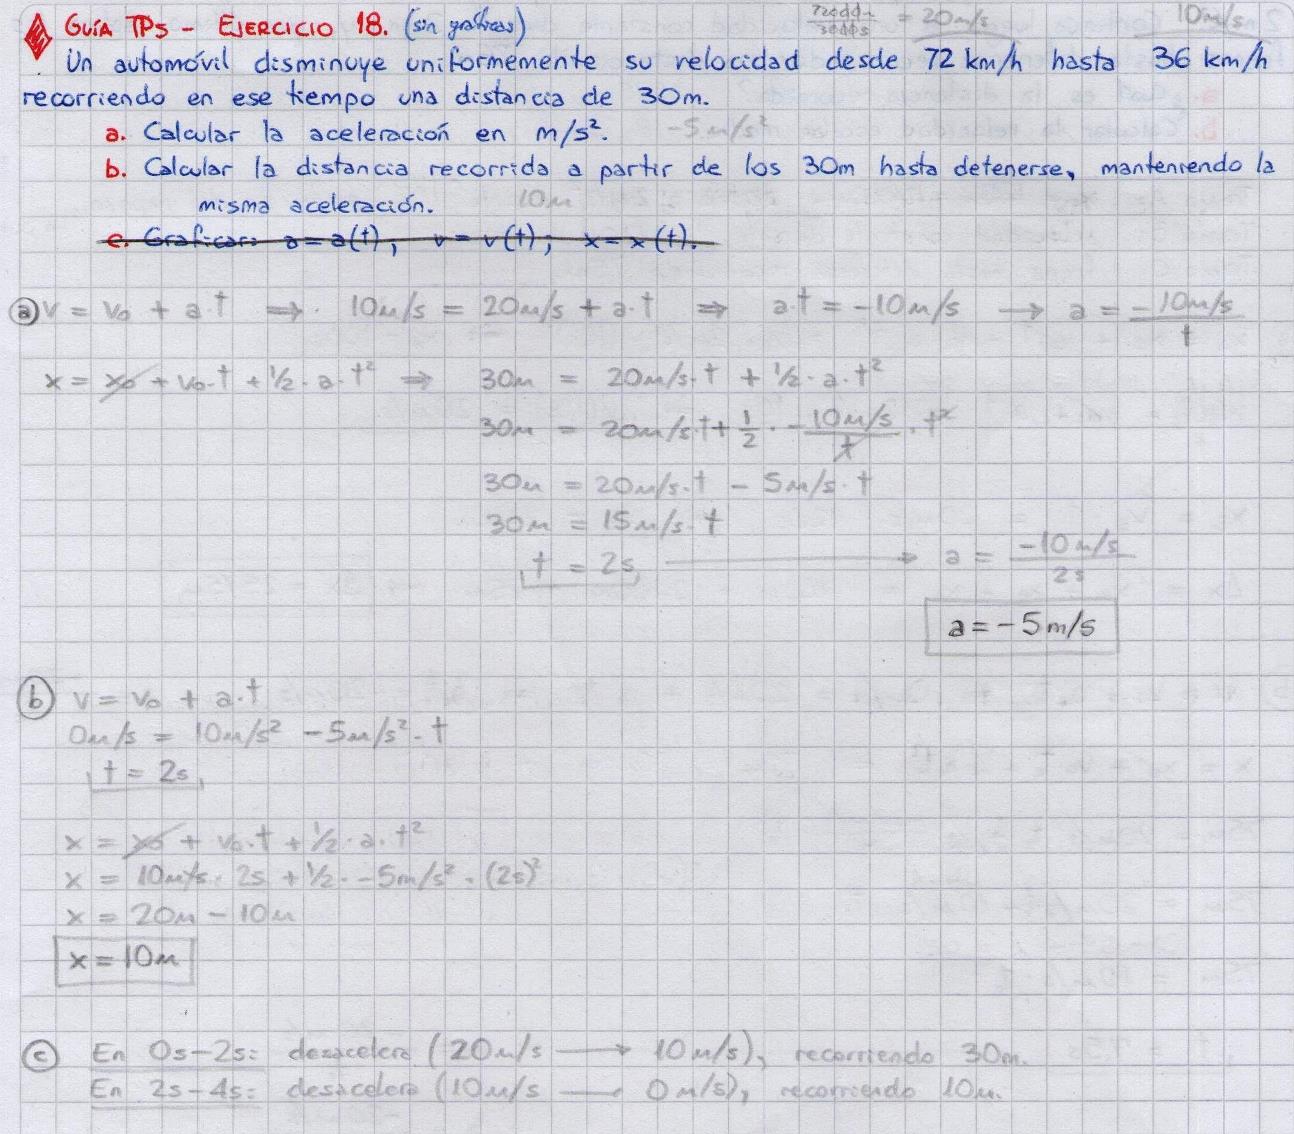 GUÍA TPs - EJERCICIO 18. (sin gráficas)
72000m / 3600s = 20m/s
10m/s
Un automóvil disminuye uniformemente su velocidad desde 72 km/h hasta 36 km/h
recorriendo en ese tiempo una distancia de 30m.
a. Calcular la aceleración en m/s². -5m/s²
b. Calcular la distancia recorrida a partir de los 30m hasta detenerse, manteniendo la
misma aceleración. 10m
c. Graficar: a=a(t); v=v(t); x=x(t).
a v = v₀ + a.t ⇒ 10m/s = 20m/s + a.t ⇒ a.t = -10m/s → a = -10m/s / t
x = x₀ + v₀.t + 1/2.a.t² ⇒ 30m = 20m/s.t + 1/2.a.t²
30m = 20m/s.t + 1/2 . -10m/s / t . t²
30m = 20m/s.t - 5m/s.t
30m = 15m/s.t
t = 2s → a = -10m/s / 2s
a = -5m/s
b v = v₀ + a.t
0m/s = 10m/s² - 5m/s².t
t = 2s
x = x₀ + v₀.t + 1/2.a.t²
x = 10m/s.2s + 1/2.-5m/s².(2s)²
x = 20m - 10m
x = 10m
c En 0s-2s: desacelera (20m/s → 10m/s), recorriendo 30m.
En 2s-4s: desacelera (10m/s — 0m/s), recorriendo 10m.